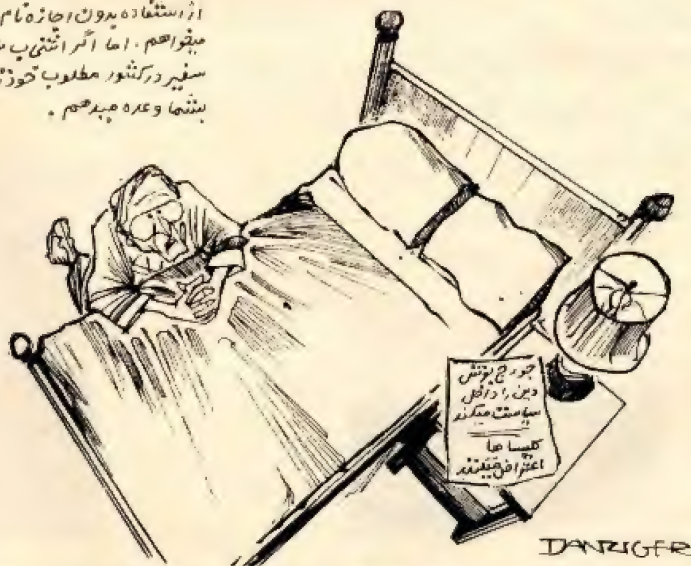 از استفاده بدون اجازه نام
میخواهم، اما اگر
سفیر در کشور مطلوب خود
بشما وعده میدهم.
جورج بوش
دین را داخل
سیاست میکند
کلیسا ها
اعتراض میکنند
DANZIGER